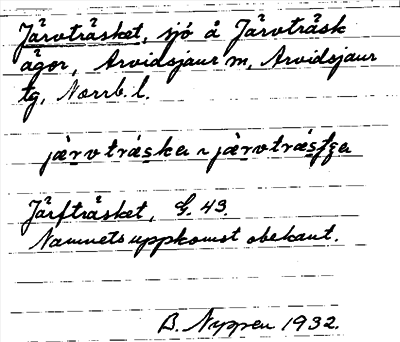 Järvträsket, sjö å Järvträsk
ägor, Arvidsjaur sn, Arvidsjaur
tg, Norrb. l.
Järfträsket, G. 43.
Namnets uppkomst obekant.
B. Nyppen 1932.